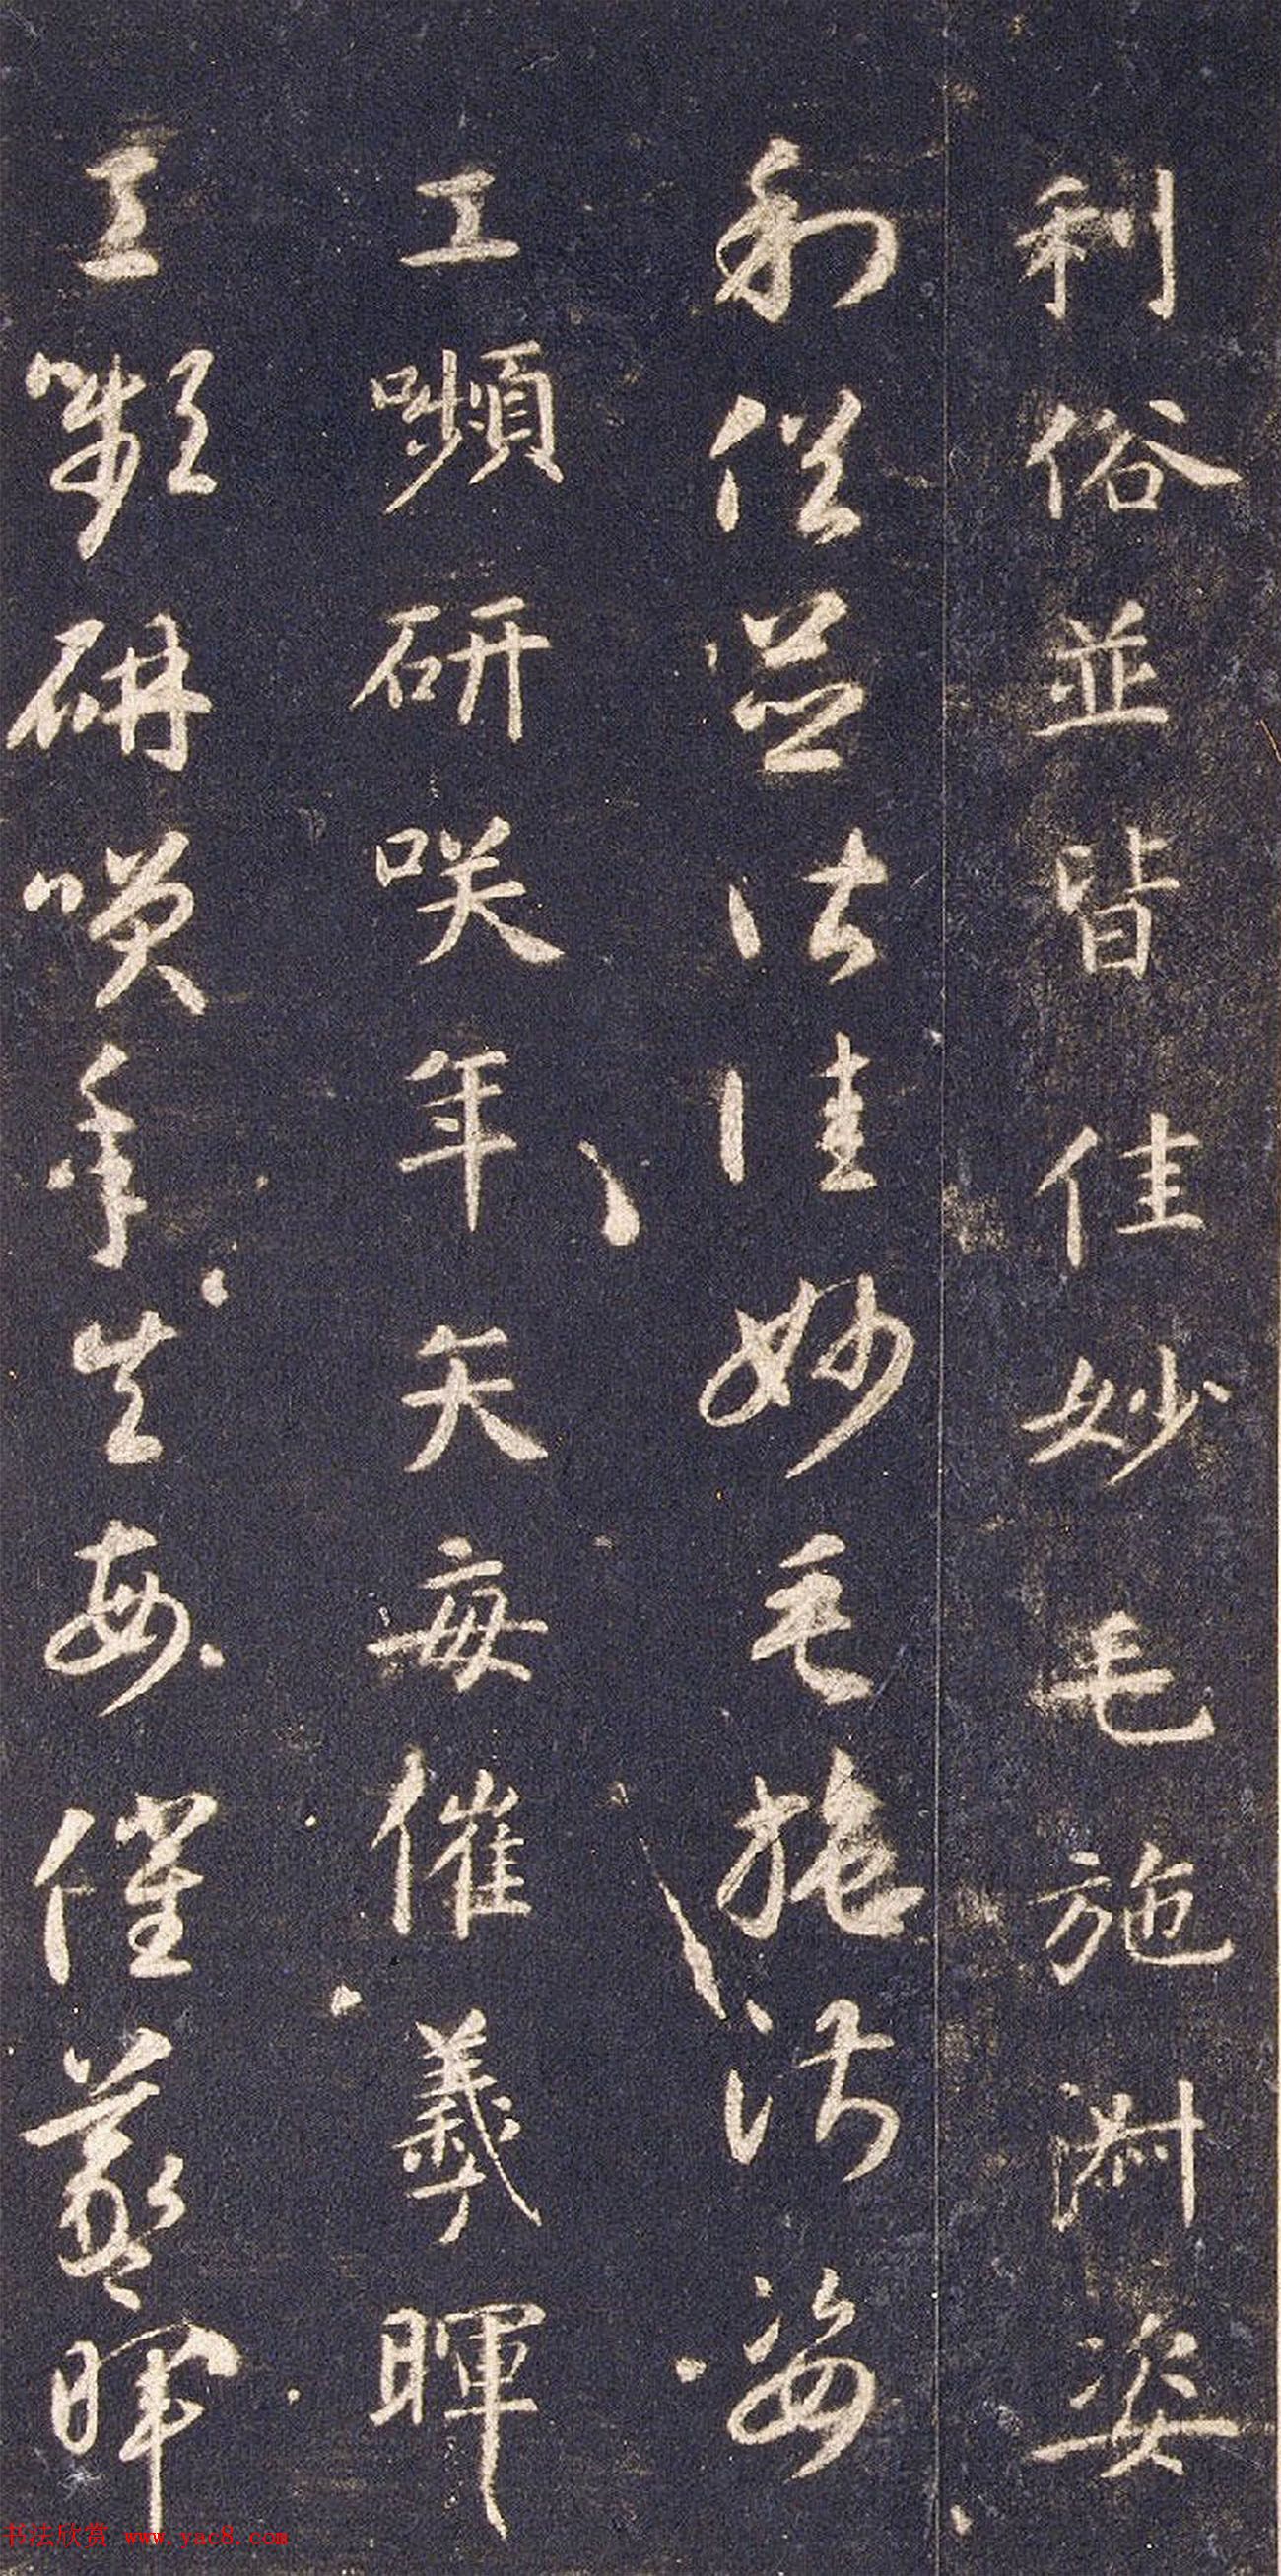 利俗並皆佳妙毛施淑姿
利俗並皆佳妙毛施淑姿
工嚬研咲年矢每催羲暉
工嚬研笑年矢每催羲暉
书法欣赏 www.yac8.com